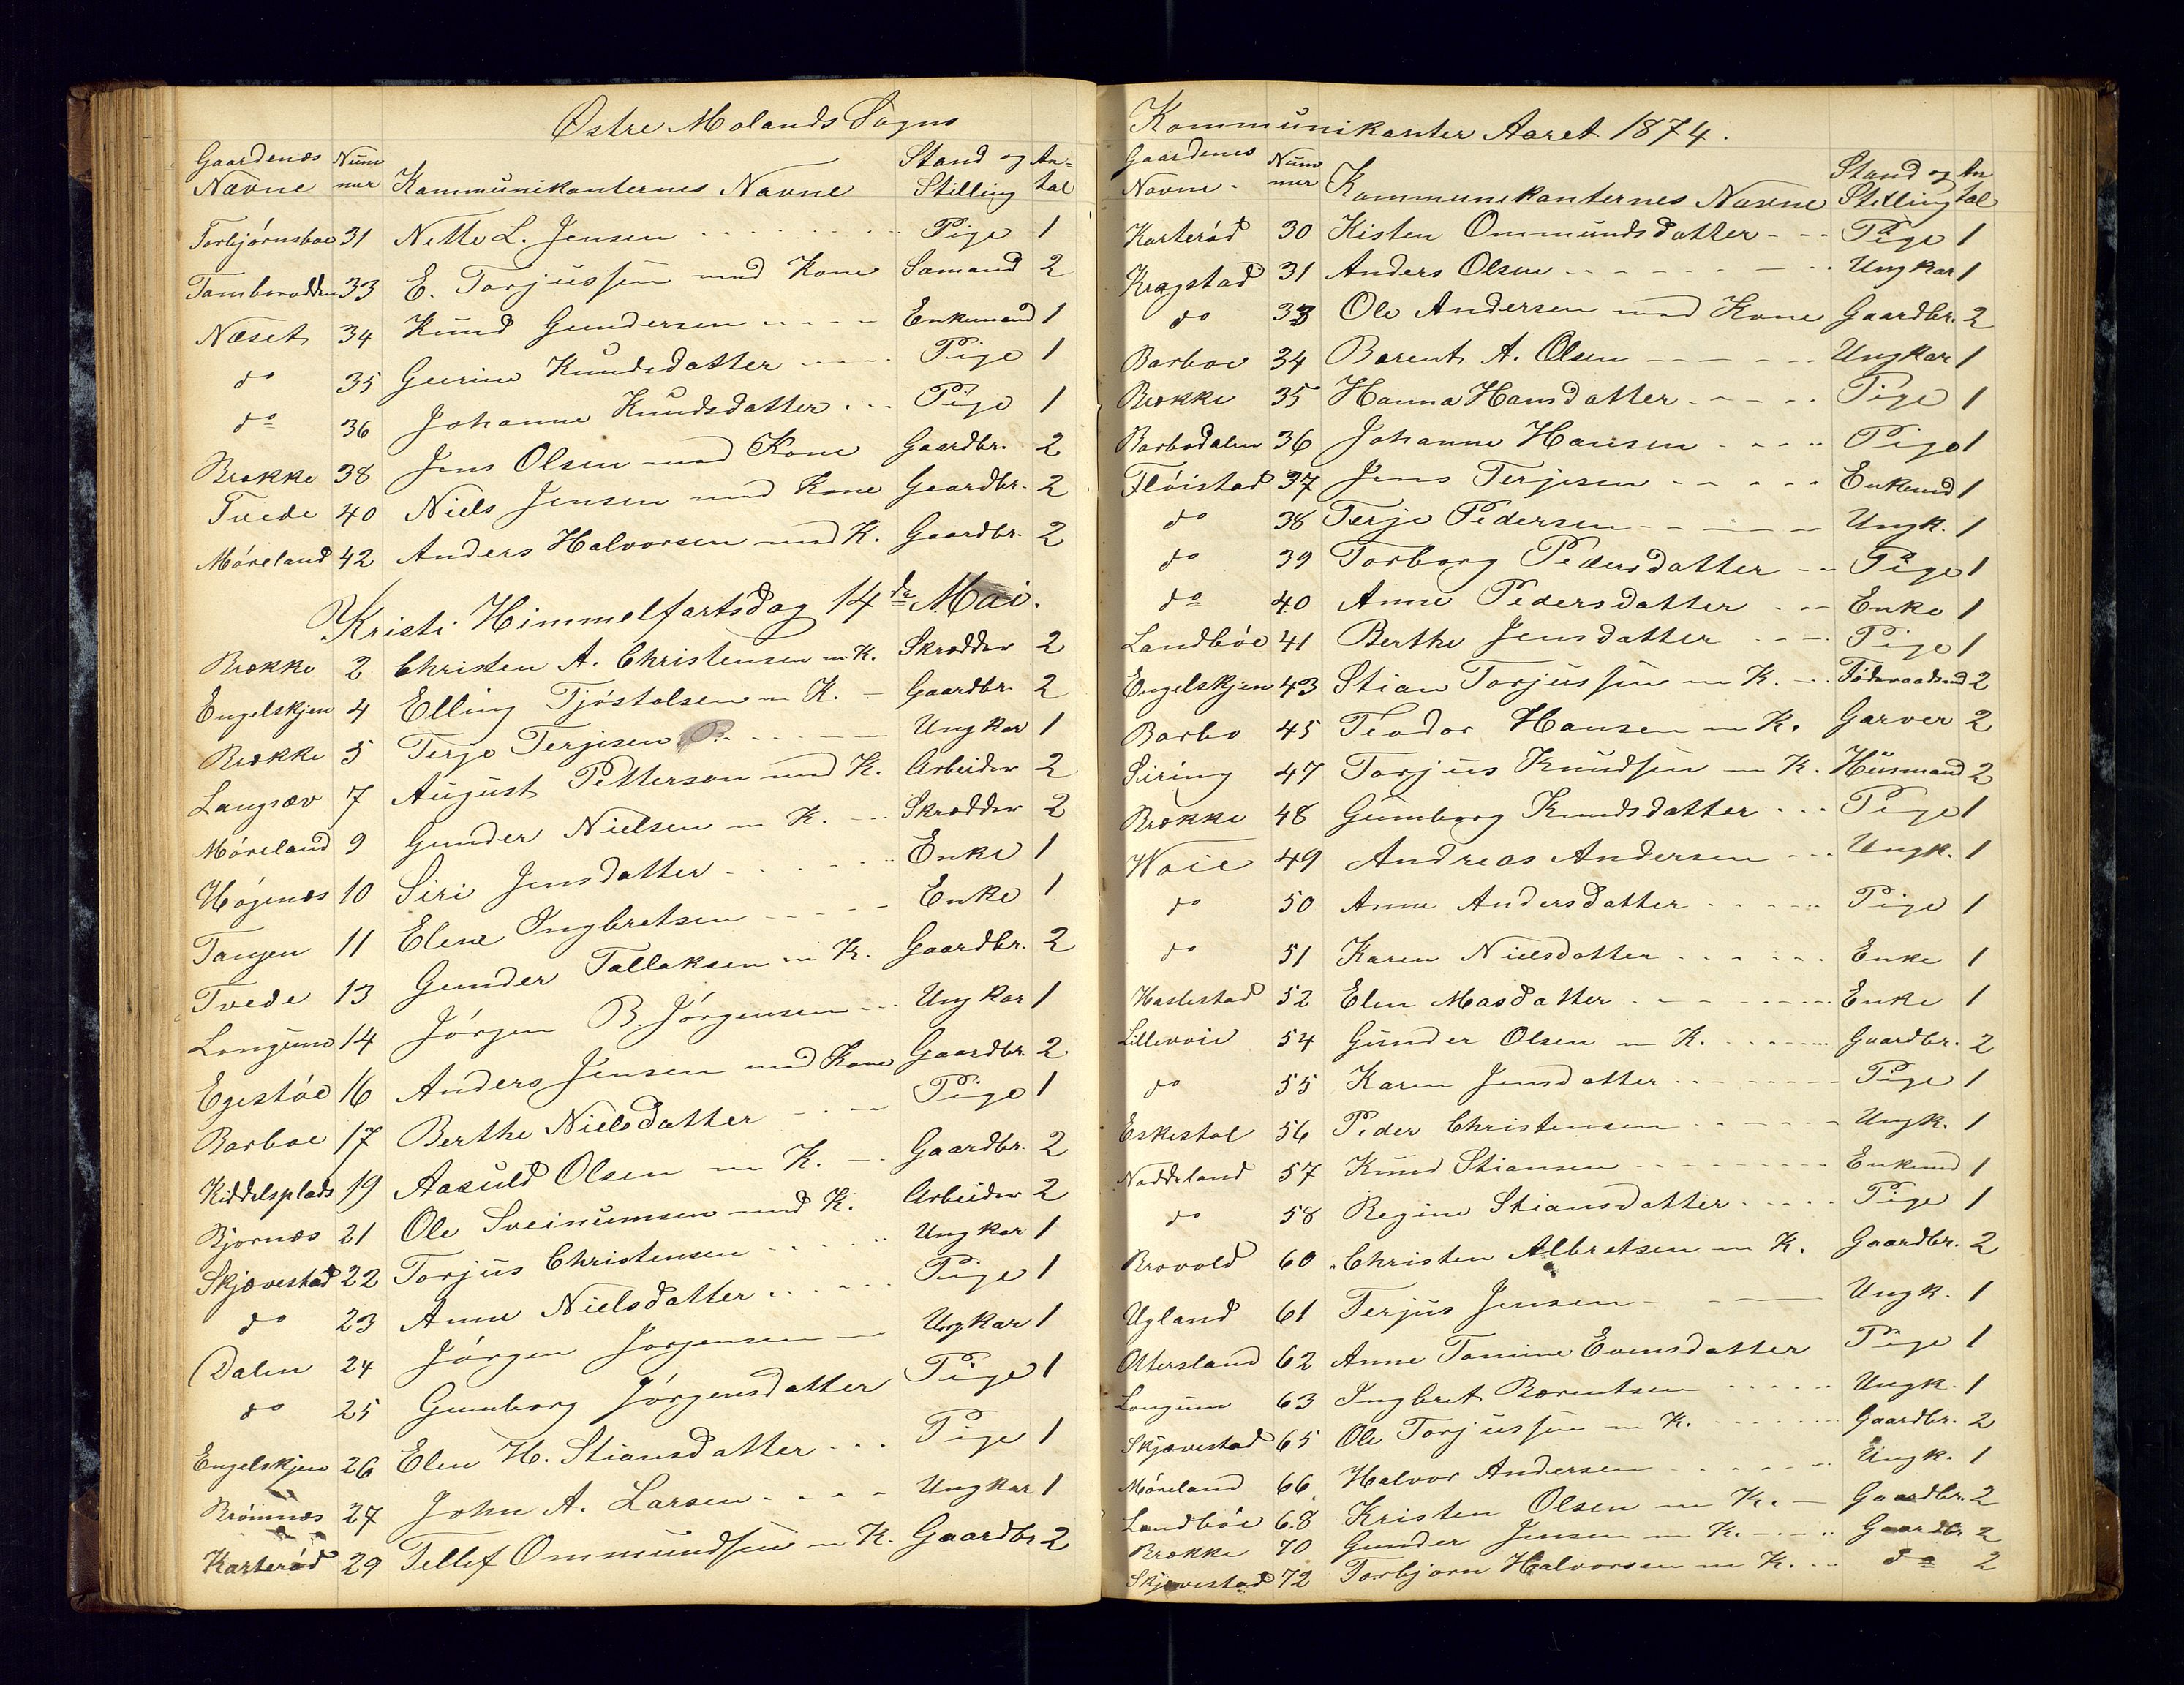 Østre Molands Sogns
Gaardenes Num Stand og An=
Navne mer Kommunikanternes Navne Stilling tal
Torbjørnsboe 31 Nette L. Jensen Pige 1
33 E. Torjussen med Kone Sømand 2
Næset 34 Knud Gundersen Enkemand 1
do 35 Gurine Knudsdatter Pige 1
do 36 Johanne Knudsdatter Pige 1
Brække 38 Jens Olsen med Kone Gaardbr. 2
Tvede 40 Niels Jensen med Kone Gaardbr. 2
Møreland 42 Anders Halvorsen med K. Gaardbr. 2
Kristi Himmelfartsdag 14de Mai.
Brække 2 Christen A. Christensen m. K. Skrædder 2
Engelskjen 4 Elling Tjøstolsen m K. Gaardbr. 2
Brække 5 Terje Terjesen Ungkar 1
Langsæv 7 August Petterson med K. Arbeider 2
Møreland 9 Gunder Nielsen m K. Skrædder 2
Høgenæs 10 Siri Jensdatter Enke 1
Tangen 11 Elene Ingbretsen Enke 1
Tvede 13 Gunder Tallaksen m K. Gaardbr. 2
Longum 14 Jörgen B. Jörgensen Ungkar 1
Egestøe 16 Anders Jensen med Kone Gaardbr. 2
Barboe 17 Berthe Nielsdatter Pige 1
Kiddelsplads 19 Aasuld Olsen m K. Gaardbr. 2
Bjørnæs 21 Ole Sveinumsen med K. Arbeider 2
Skjævestad 22 Torjus Christensen Ungkar 1
do 23 Anne Nielsdatter Pige 1
Dalen 24 Jörgen Jorgensen Ungkar 1
do 25 Gumborg Jörgensdatter Pige 1
Engelskjen 26 Elen H. Stiansdatter Pige 1
Brømnæs 27 John A. Larsen Ungkar 1
Karterød 29 Tellef Ommundsen m K. Gaardbr 2
Kommunikanter Aaret 1874.
Gaardenes Num Stand og An
Navne. mer Kommunekanternes Navne Stilling tal
Karterød 30 Kisten Ommundsdatter Pige 1
Kragstad 31 Anders Olsen Ungkar 1
do 33 Ole Andersen med Kone Gaardbr. 2
Barboe 34 Barent A. Olsen Ungkar 1
Brække 35 Hanna Hansdatter Pige 1
Barbodalen 36 Johanne Hansen Pige 1
Fløistad 37 Jens Terjesen Enkemd 1
do 38 Terje Pedersen Ungk. 1
do 39 Torborg Pedersdatter Pige 1
do 40 Anne Pedersdatter Enke 1
Landbøe 41 Berthe Jensdatter Pige 1
Engelskjen 43 Stian Torjussen m K. Föderaadsmd 2
Barbo 45 Teodor Hansen m K. Garver 2
Siring 47 Torjus Knudsen m K. Husmand 2
Brække 48 Gumborg Knudsdatter Pige 1
Woie 49 Andreas Andersen Ungk. 1
do 50 Anne Andersdatter Pige 1
do 51 Karen Nielsdatter Enke 1
Haslestad 52 Elen Masdatter Enke 1
Lillevoie 54 Gunder Olsen m K. Gaardbr. 2
do 55 Karen Jensdatter Pige 1
Eskestol 56 Peder Christensen Ungk. 1
Naddeland 57 Knud Stiansen Enkemd 1
do 58 Regine Stiansdatter Pige 1
Brovold 60 Christen Albretsen m K. Gaardbr. 2
Ugland 61 Terjus Jensen Ungk. 1
Ottersland 62 Anne Tomine Evensdatter Pige 1
Longum 63 Ingbret Bærentsen Ungk. 1
Skjævestad 65 Ole Torjussen m K. Gaardbr. 2
Møreland 66 Halvor Andersen Ungk. 1
Landbøe 68 Kristen Olsen m K. Gaardbr. 2
Brække 70 Gunder Jensen m K. Gaardbr 2
Skjævestad 72 Torbjorn Halvorsen m K. do 2